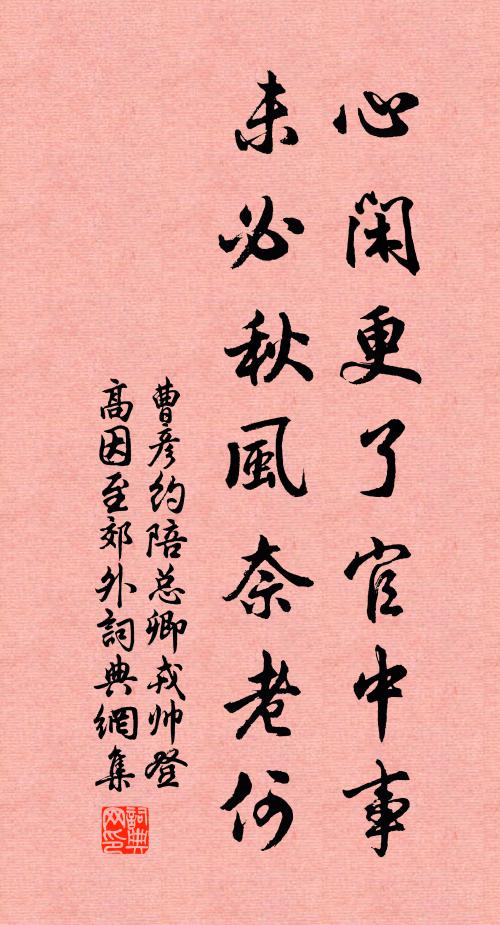 心闲更了官中事
未必秋風奈老何
曹彦約陪总卿戎帅登
高因至郊外詞典網集
詞典网印